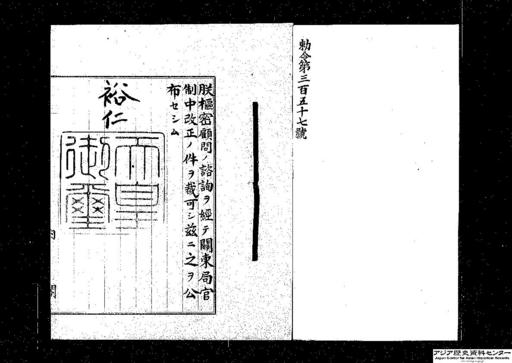 勅令第三百五十七號
朕樞密顧問ノ諮詢ヲ經テ關東局官
制中改正ノ件ヲ裁可シ茲ニ之ヲ公
布セシム
裕仁
天皇
御璽
内
閣
アジア歴史資料センター
Japan Center for Asian Historical Records